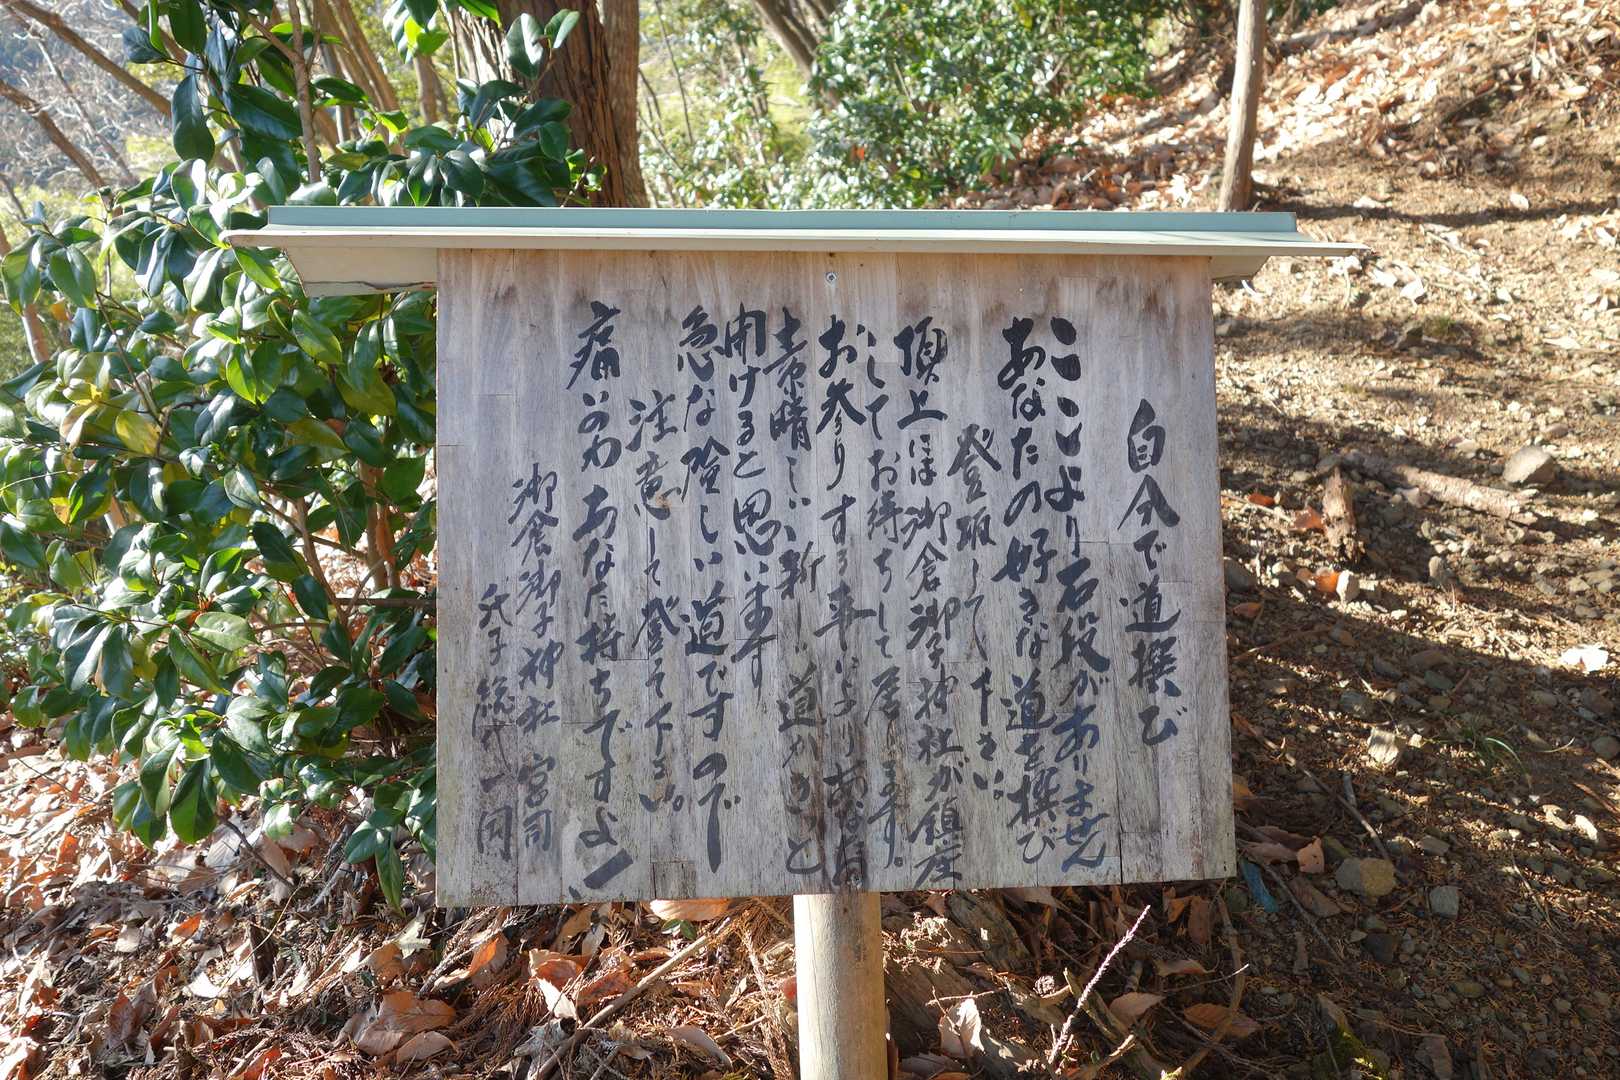 自分で道撰び
ここより石段がありません
あなたの好きな道を撰び
登坂して下さい。
頂上には御倉御子神社が鎮座
してお待ちして居ります。
お参りする事により前な自
素晴しい新しい道がきっと
開けると思います
急な険しい道ですので
注意して登て下さい。
痛いのわあなた持ちですよ!!
御倉御子神社 宮司
氏子総代一同